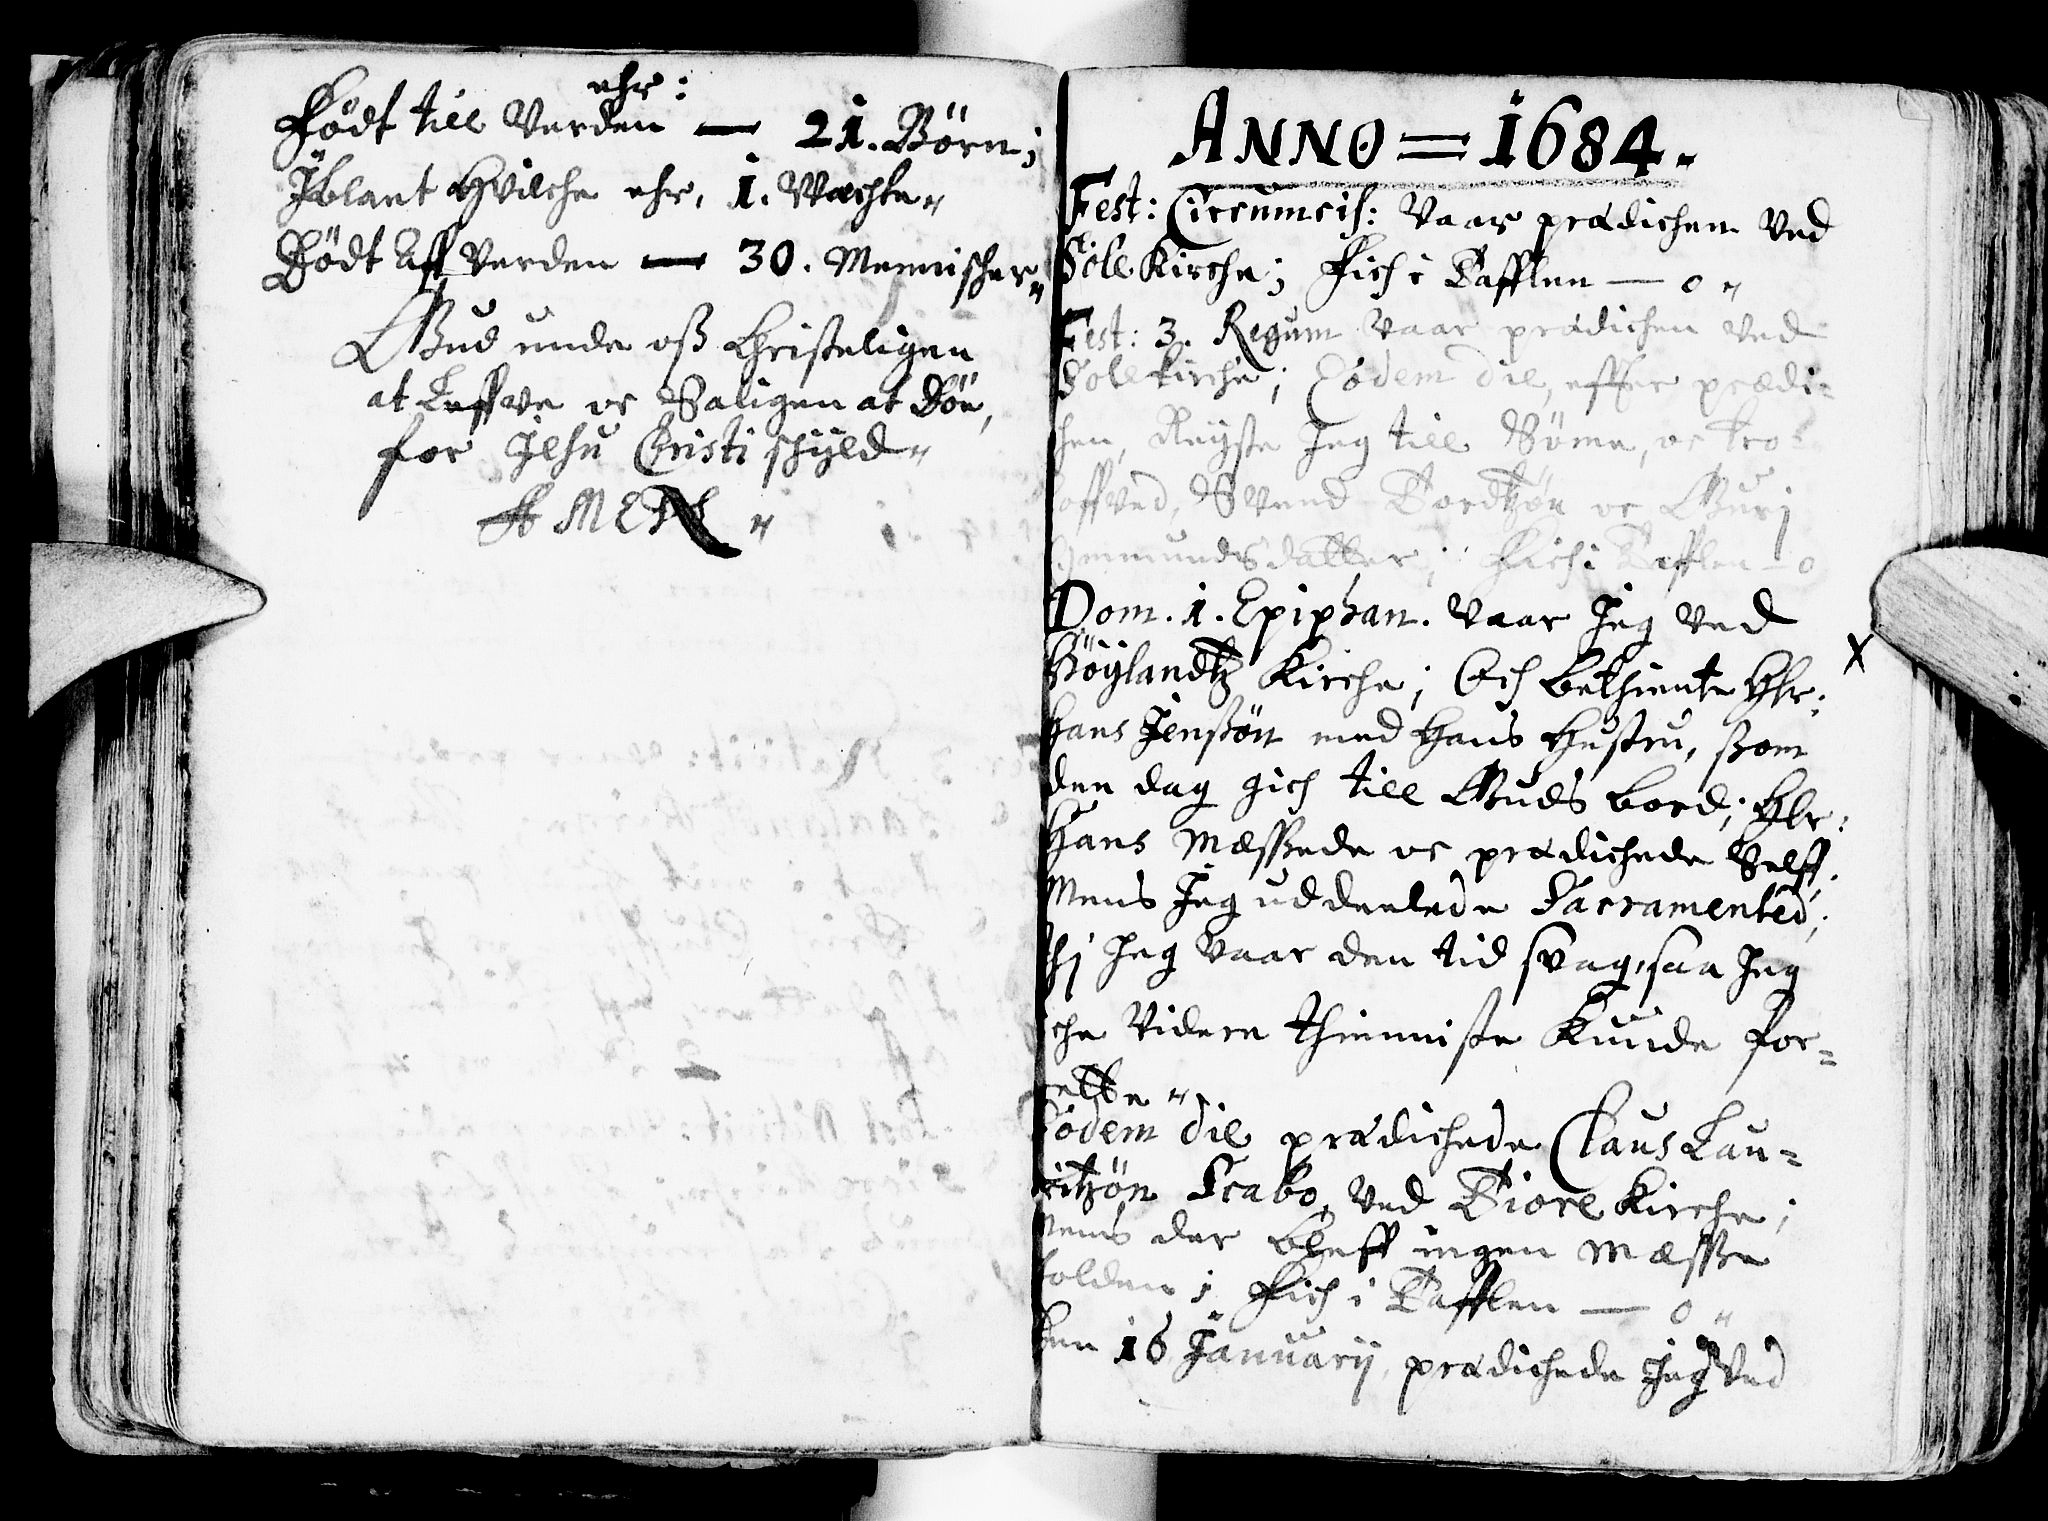 ehr:
Født till Verden — 21. Børn;
Iblant Hvilche ehr, 1. Wæchte„
Dødt Aff Verden — 30. Mennischer„
Gud unde oss Christeligen
at Leffve oc Saligen at Døe,
for Jesu Christi schyld„
AMEN„
ANNO = 1684.
Fest: Circumcis: Vaar prædichen Ved
Sole Kirche; Fich i Tafflen — 0„
Fest: 3. Regum Vaar prædichen Ved
Sole kirche; Eodem die, effter prædi=
chen, Reyste Jeg till Søme, oc tro-
loffved, Svend Tordtzøn oc Guri
mmundsdatter; Fich i Tafflen — 0
Dom. 1. Epiphan. Vaar Jeg Ved
Høylandtz Kirche; Och bethiente Hr:
Hans Jenssøn med Hans Hustru, ssom
den dag gich till Guds bord; Hr:
Hans Mæssede oc prædichede Selff.
Mens Jeg uddeelede Sacramented;
thj Jeg Vaar den tid svag, saa Jeg
iche Videre thienniste Kunde for=
rette„
Eodem die prædichede Claus Lau=
ritzøn Scabo, Ved Tiore Kirche;
Mens der bleff ingen Mæsse
holden; Fich i Tafflen — 0„
Den 16 Januarij prædichede Jeg Ved